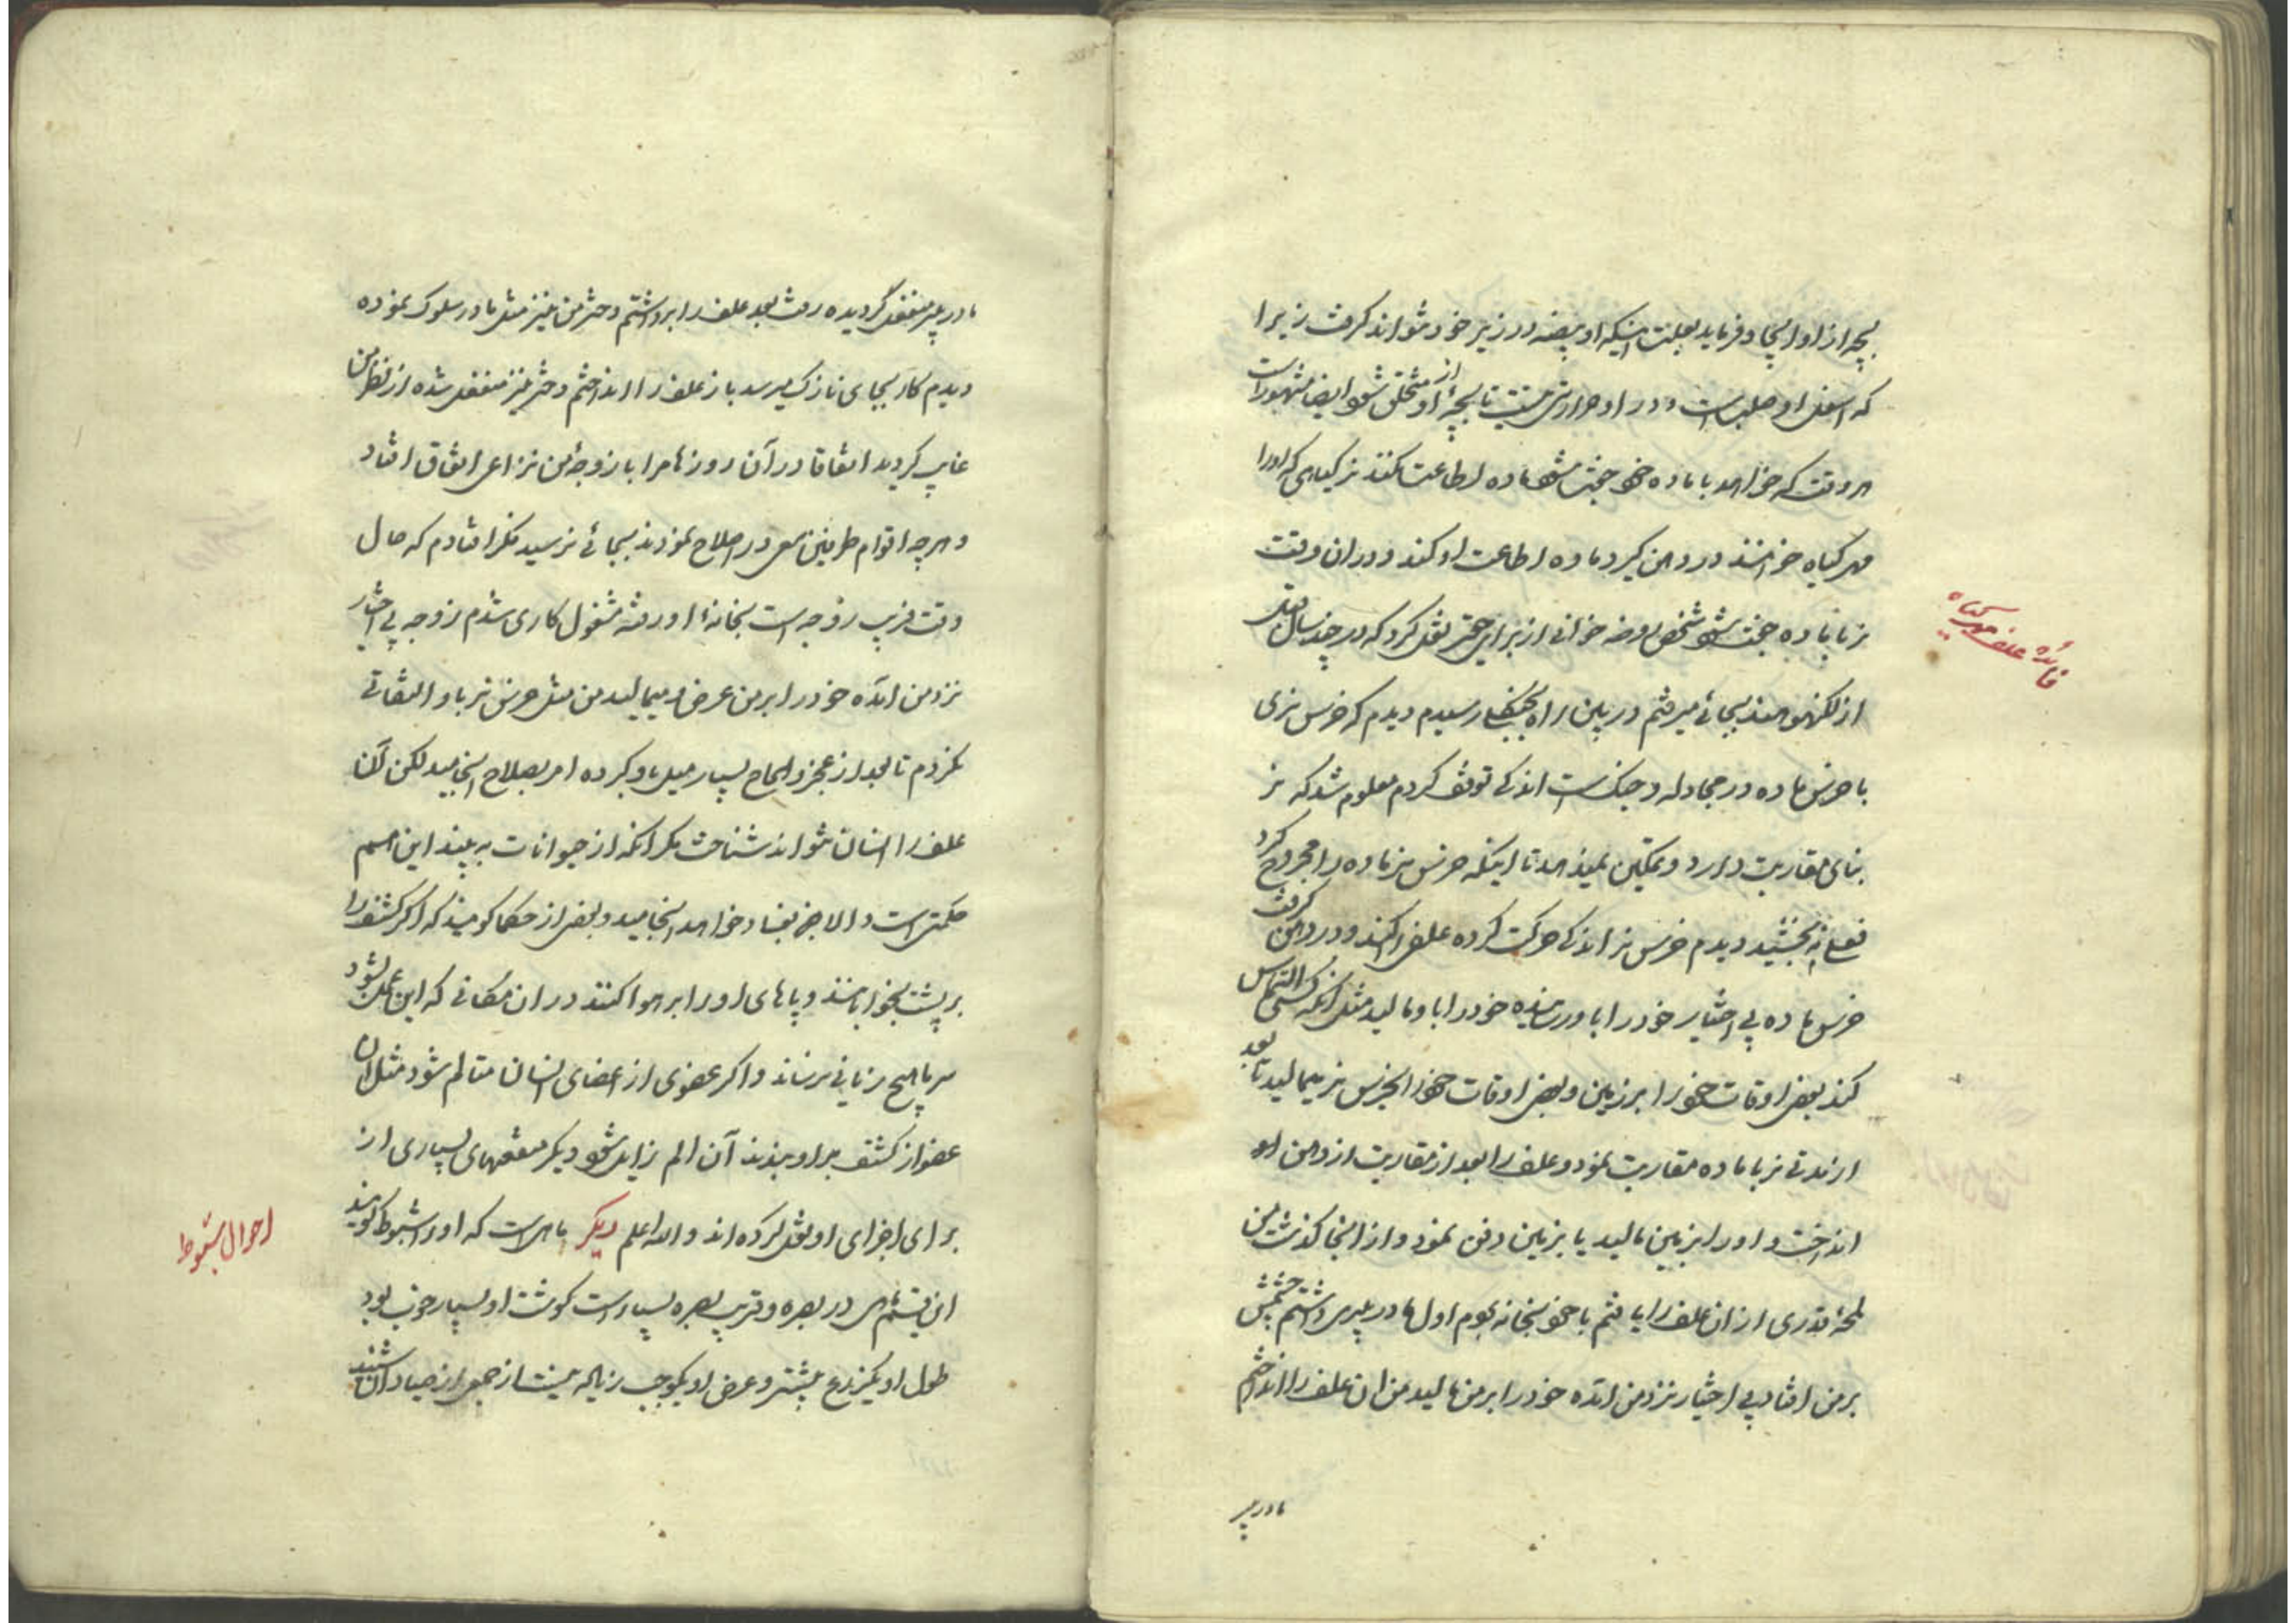 بچه از او ایجاد فرماید بعلت اینکه او بیضه در زیر خود نتواند کرفت زیرا
که اسفل او صلب است و در او حرارتی نیست تا بچهٔ از او متخلق شود ایضا مشهور است
هر وقت که خواهد با ماده خود جفت شود ماده اطاعت نکند نر کیاهی که او را
مهر کیاه خوانند در دهن کیرد ماده اطاعت او کند و در ان وقت
نر با ماده جفت شود شخص روضه خوانی از برای حقیر نقل کرد که در چند سال قبل
فائدهٔ علف مهر کیاه
از لکنهو بجائی میرفتم در بین راه رسیدم دیدم که خرس نری
با خرس ماده در مجادله و جنک است اندکی توقف کردم معلوم شد که نر
بنای مقاربت دارد و تمکین نمیدهد تا اینکه خرس نر ماده را مجروح کرد
نفعی نه بخشید دیدم خرس نر اندکی حرکت کرده علفی کند و در دهن کرفت
خرس ماده بی اختیار خود را باو رسانیده خود را باو مالید مثل آنکه کسی التماس
کند بعضی اوقات خود را بر زمین و بعضی اوقات خود را بخرس نر میمالید تا بعد
از مدتی نر با ماده مقاربت نمود و علف را بعد از مقاربت از دهن او
انداخت و او را بزمین مالید یا بزمین دفن نمود و از انجا کذشت من
قدری از ان علف را یافتم با خود بخانه بردم اول مادر پیری داشتم چشمش
بر من افتاد بی اختیار نزد من آمده خود را بر من مالید من ان علف را انداختم
مادر پیر
مادر پیر منفعل کردیده رفت بعد علف را برداشتم دختر من نیز مثل مادر سلوک نموده
دیدم کار بجای نازک میرسد باز علف را انداختم دختر نیز منفعل شده از نظر من
غایب کردید اتفاقا در آن روزها مرا با زوجهٔ من نزاعی اتفاق افتاد
و هر چه اقوام طرفین سعی در اصلاح نمودند بجائی نرسید فکر افتادم که حال
وقت فریب زوجه است بخانهٔ او رفته مشغول کاری شدم زوجه بی اختیار
نزد من آمده خود را بر من عرض و میمالید من مثل خرس نر باو التفاتی
نکردم تا بعد از عجز و الحاح بسیار میل باو کرده امر بصلاح انجامید لکن آن
علف را انسان نتواند شناخت مکر آنکه از حیوانات به بیند این هم
حکمتی است و الا جز بفساد نخواهد انجامید و بعضی از حکما کویند که اکر کشف را
بر پشت بخوابانند و پاهای او را بر هوا کنند در ان مکانی که این عمل بشود
سرما هیچ زیانی نرساند و اکر عضوی از اعضای انسان متالم شود مثل ان
عضو از کشف بر او بندند آن الم زایل شود دیکر منفعتهای بسیاری از
برای اجزای او نقل کرده اند و الله اعلم دیکر ماهی است که او را شبوط کویند
احوال شبوط
این قسم ماهی در بصره و قریب بصره بسیار است کوشت او بسیار خوب بود
طول او یکذرع بیشتر و عرض او یکوجب زیاده نیست از جمعی از صیادان شنیده